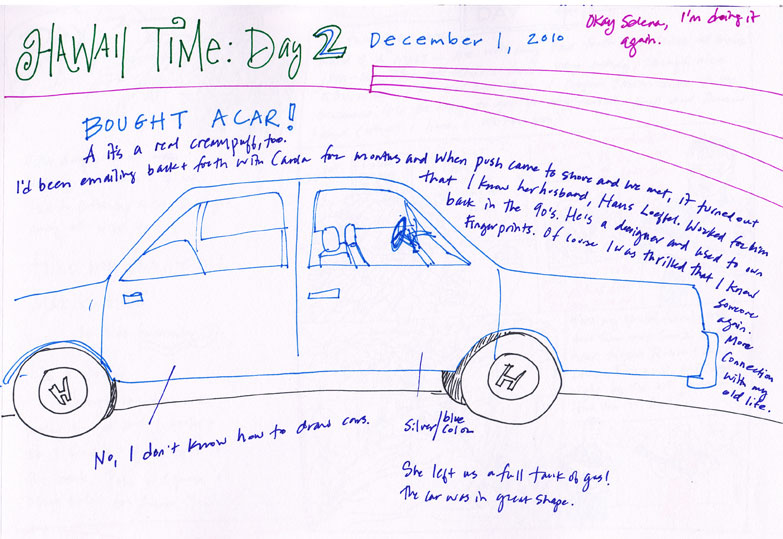 HAWAII TIME: DAY 2
December 1, 2010
Okay Selena, I'm doing it
again.
BOUGHT A CAR!
A it's a real creampuff, too.
I'd been emailing back + forth with Carda for months and when push came to shove and we met, it turned out
that I know her husband, Hans Loeffel. Worked for him
back in the 90's. He's a designer and used to own
Fingerprints. Of course I was thrilled that I know
someone
again.
More
Connection
with my
old life.
H
H
No, I don't know how to draw cars.
Silver/blue
color
She left us a full tank of gas!
The car was in great shape.